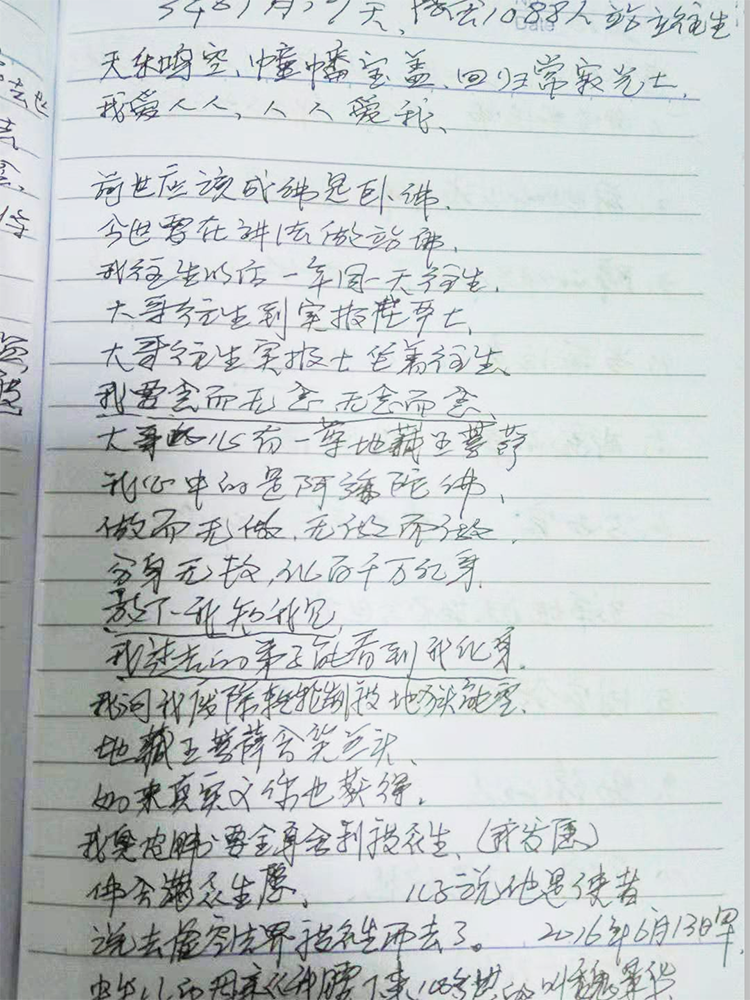 站立往生
天乐鸣空、幢幡宝盖、回归常寂光土、
我爱人人,人人爱我、
前世应该成佛是卧佛、
今世要在讲法做站佛、
我往生以后一年同一天往生、
大哥往生到实报庄严土、
大哥往生实报土坐着往生、
我要念而无念 无念而念、
大哥 心有一尊地藏王菩萨
我心中的是阿弥陀佛、
做而无做、无做而做、
分身无数、化百千万亿身、
放下我知我见、
我 的弟子能看到我化身、
我问我废除 制度地狱能空、
地藏王菩萨含笑 头、
如来真实义你也获得、
我 要全身舍利 众生、(我发愿)
佛 满众生愿、 儿子说他是使者
说去虚空法界 众生而去了。 2016年6月13日早、